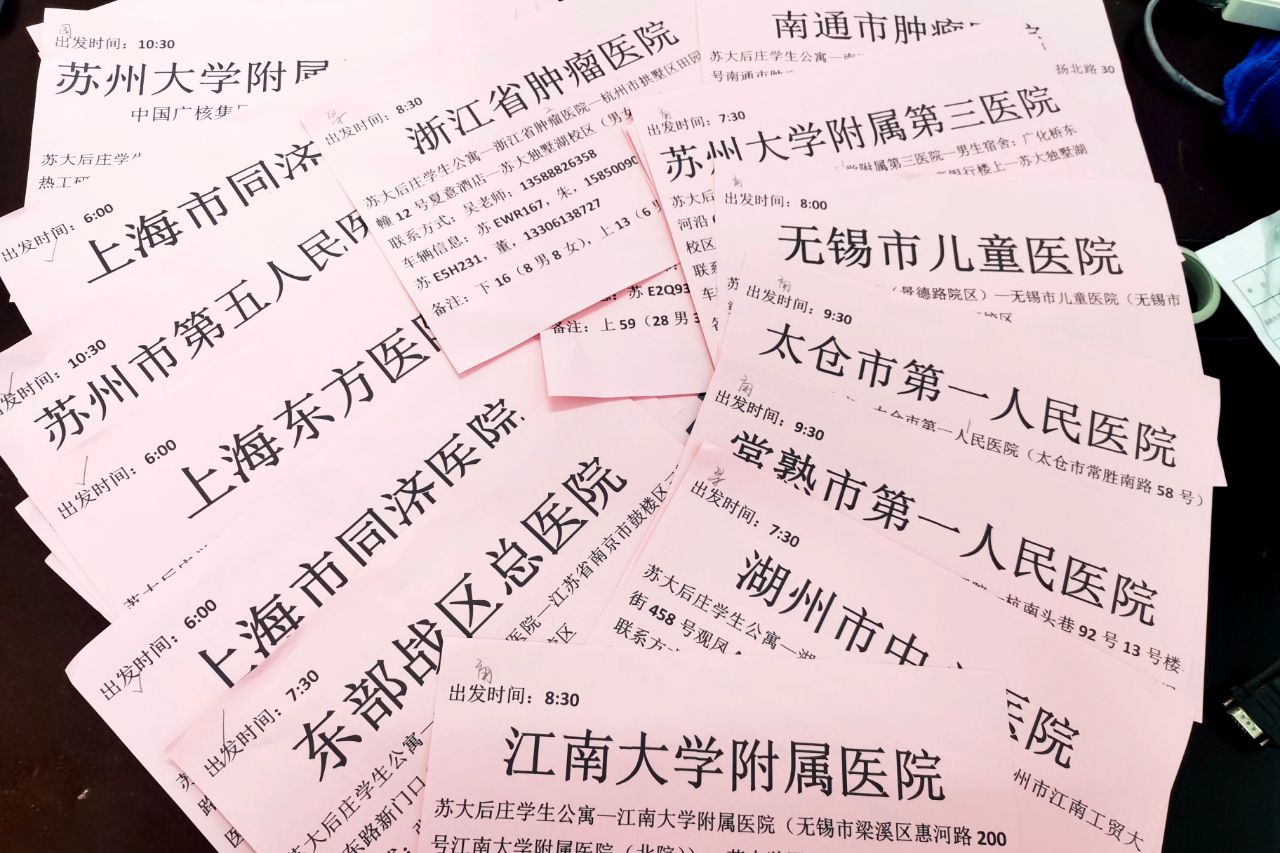 出发时间：10:30
苏州大学附属
中国广核集
苏大后庄学生
热工研
出发时间：6:00
上海市同济
出发时间：10:30
苏州市第五人民医
出发时间：6:00
上海东方医
苏大后庄学
出发时间：6:00
上海市同济医院
出发时间：7:30
东部战区总医院
医院—江苏省南京市鼓楼区
苏大后庄学生公寓—
东路新门口
出发时间：8:30
浙江省肿瘤医院
苏大后庄学生公寓—浙江省肿瘤医院—杭州市拱墅区田园
幢 12 号夏意酒店—苏大独墅湖校区（男女
联系方式：吴老师：13588826358
车辆信息：苏 EWR167，朱，15850090
苏 E5H231，董，13306138727
备注：下 16（8 男 8 女），上 13（6 男
苏 E2Q93
备注：上 59（28 男 3
南通市肿瘤医院
苏大后庄学生公寓—南
号南通市肿
扬北路 30
出发时间：7:30
苏州大学附属第三医院
学附属第三医院—男生宿舍：广化桥东
银行楼上—苏大独墅湖
苏大后
河沿 6
校区
联系
车
出发时间：8:00
无锡市儿童医院
（景德路院区）—无锡市儿童医院（无锡市
校区
出发时间：9:30
太仓市第一人民医院
太仓市第一人民医院（太仓市常胜南路 58 号）
出发时间：9:30
常熟市第一人民医院
杭南头巷 92 号 13 号楼
出发时间：7:30
湖州市中心医院
苏大后庄学生公寓—湖
街 458 号观凤
联系方式
州市江南工贸大
南
出发时间：8:30
江南大学附属医院
苏大后庄学生公寓—江南大学附属医院（无锡市梁溪区惠河路 200
号江南大学附属医院（北院））—苏大